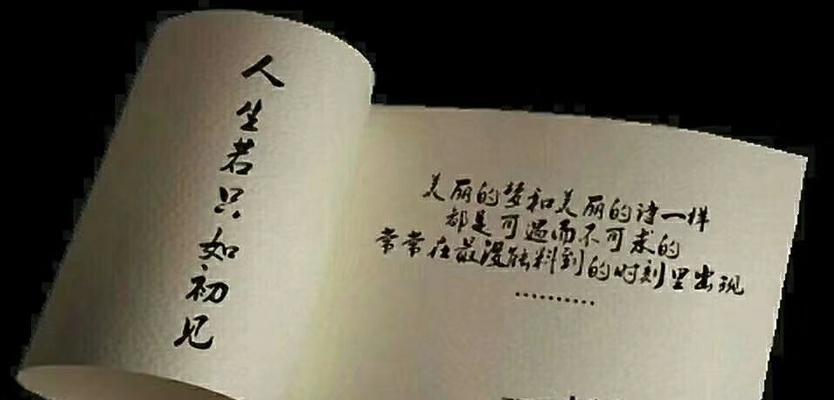 人生若只如初见
美丽的梦和美丽的诗一样
都是可遇而不可求的
常常在最没能料到的时刻里出现
…………